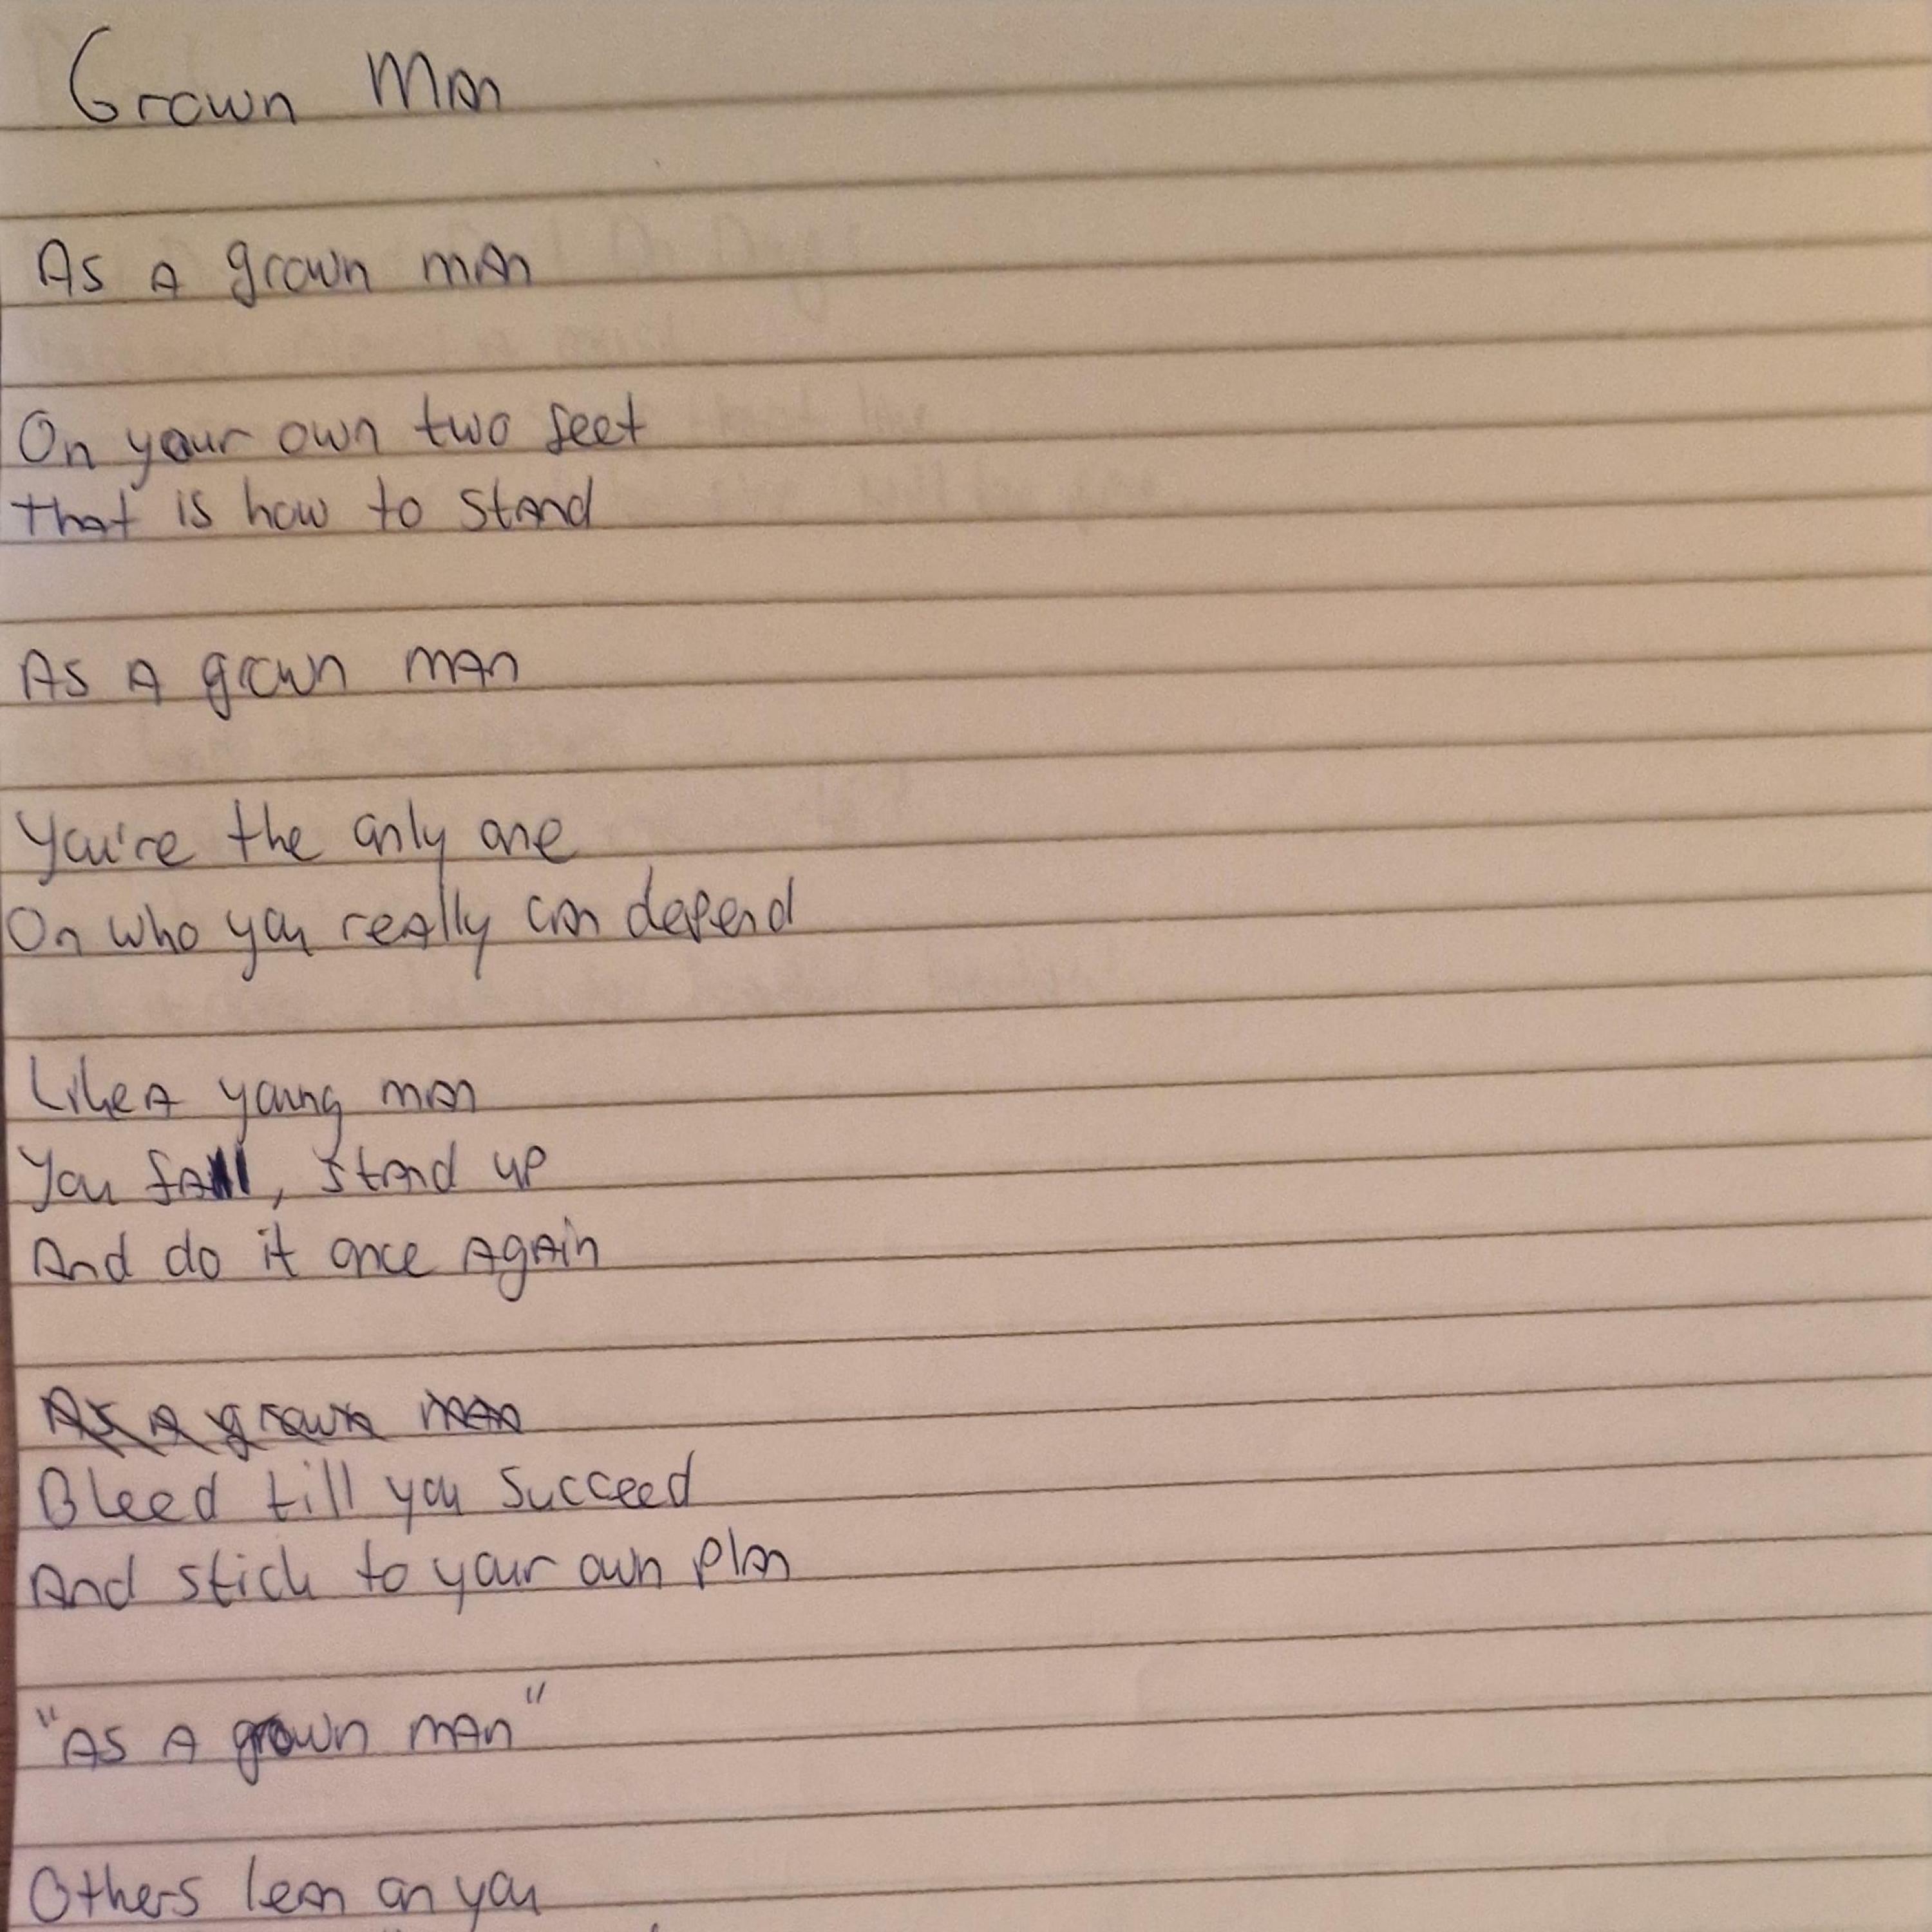 Grown Man
As a grown man
On your own two feet
that is how to stand
As a grown man
You're the only one
On who you really can depend
Like a young man
You fall, stand up
And do it once again
As a grown man
Bleed till you succeed
And stick to your own plan
"As a grown man"
Others lean on you